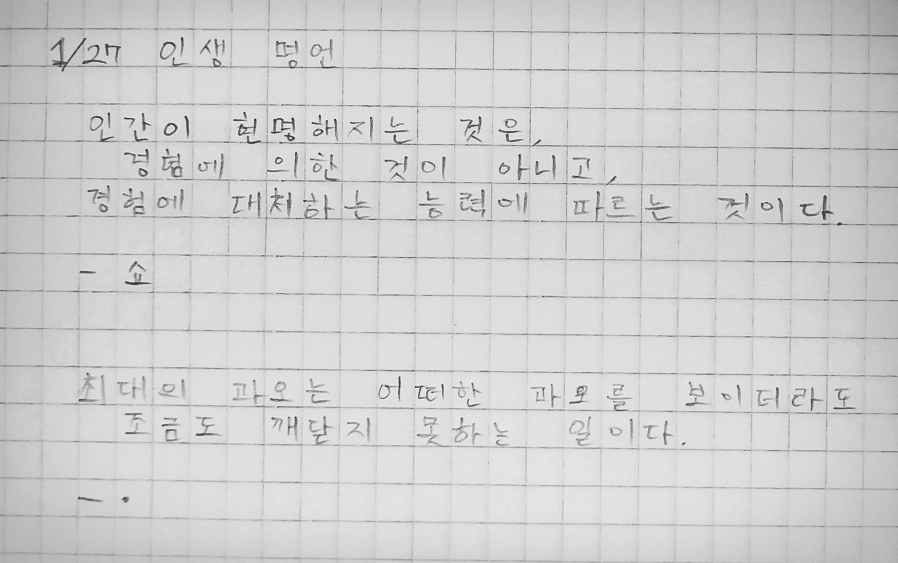 1/27 인생 명언
인간이 현명해지는 것은,
경험에 의한 것이 아니고,
경험에 대처하는 능력에 따르는 것이다.
- 쇼
최대의 과오는 어떠한 과오를 보이더라도
조금도 깨닫지 못하는 일이다.
- .